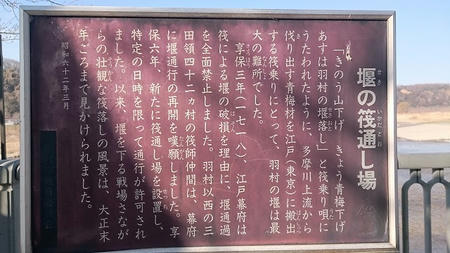 堰の筏通し場
せき いかだとお
「きのう山下げ きょう青梅下げ
あすは羽村の堰落し」と筏乗り唄に
うたわれたように、多摩川上流から
伐り出す青梅材を江戸（東京）に搬出
する筏乗りにとって、羽村の堰は最
大の難所でした。
享保三年（一七一八）、江戸幕府は
筏による堰の破損を理由に、堰通過
を全面禁止しました。羽村以西の三
田領四十二ヵ村の筏師仲間は、幕府
に堰通行の再開を嘆願しました。享
保六年、新たに筏通し場を設置し、
特定の日時を限って通行が許可され
ました。以来、堰を下る戦場さなが
らの壮観な筏落しの風景は、大正末
年ごろまで見かけられました。
昭和六十二年三月